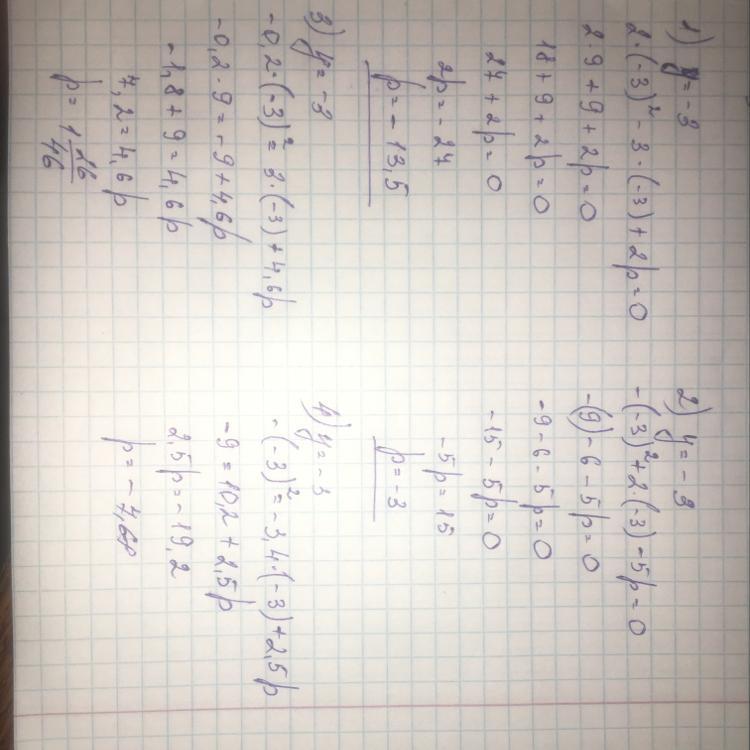 1) y = -3
2·(-3)² - 3·(-3) + 2p = 0
2·9 + 9 + 2p = 0
18 + 9 + 2p = 0
27 + 2p = 0
2p = -27
p = -13,5
2) y = -3
-(-3)² + 2·(-3) - 5p = 0
-(9) - 6 - 5p = 0
-9 - 6 - 5p = 0
-15 - 5p = 0
-5p = 15
p = -3
3) y = -3
-0,2·(-3)² = 3·(-3) + 4,6p
-0,2·9 = -9 + 4,6p
-1,8 + 9 = 4,6p
7,2 = 4,6p
p = 1 26/46
4) y = -3
-(-3)² = -3,4·(-3) + 2,5p
-9 = 10,2 + 2,5p
2,5p = -19,2